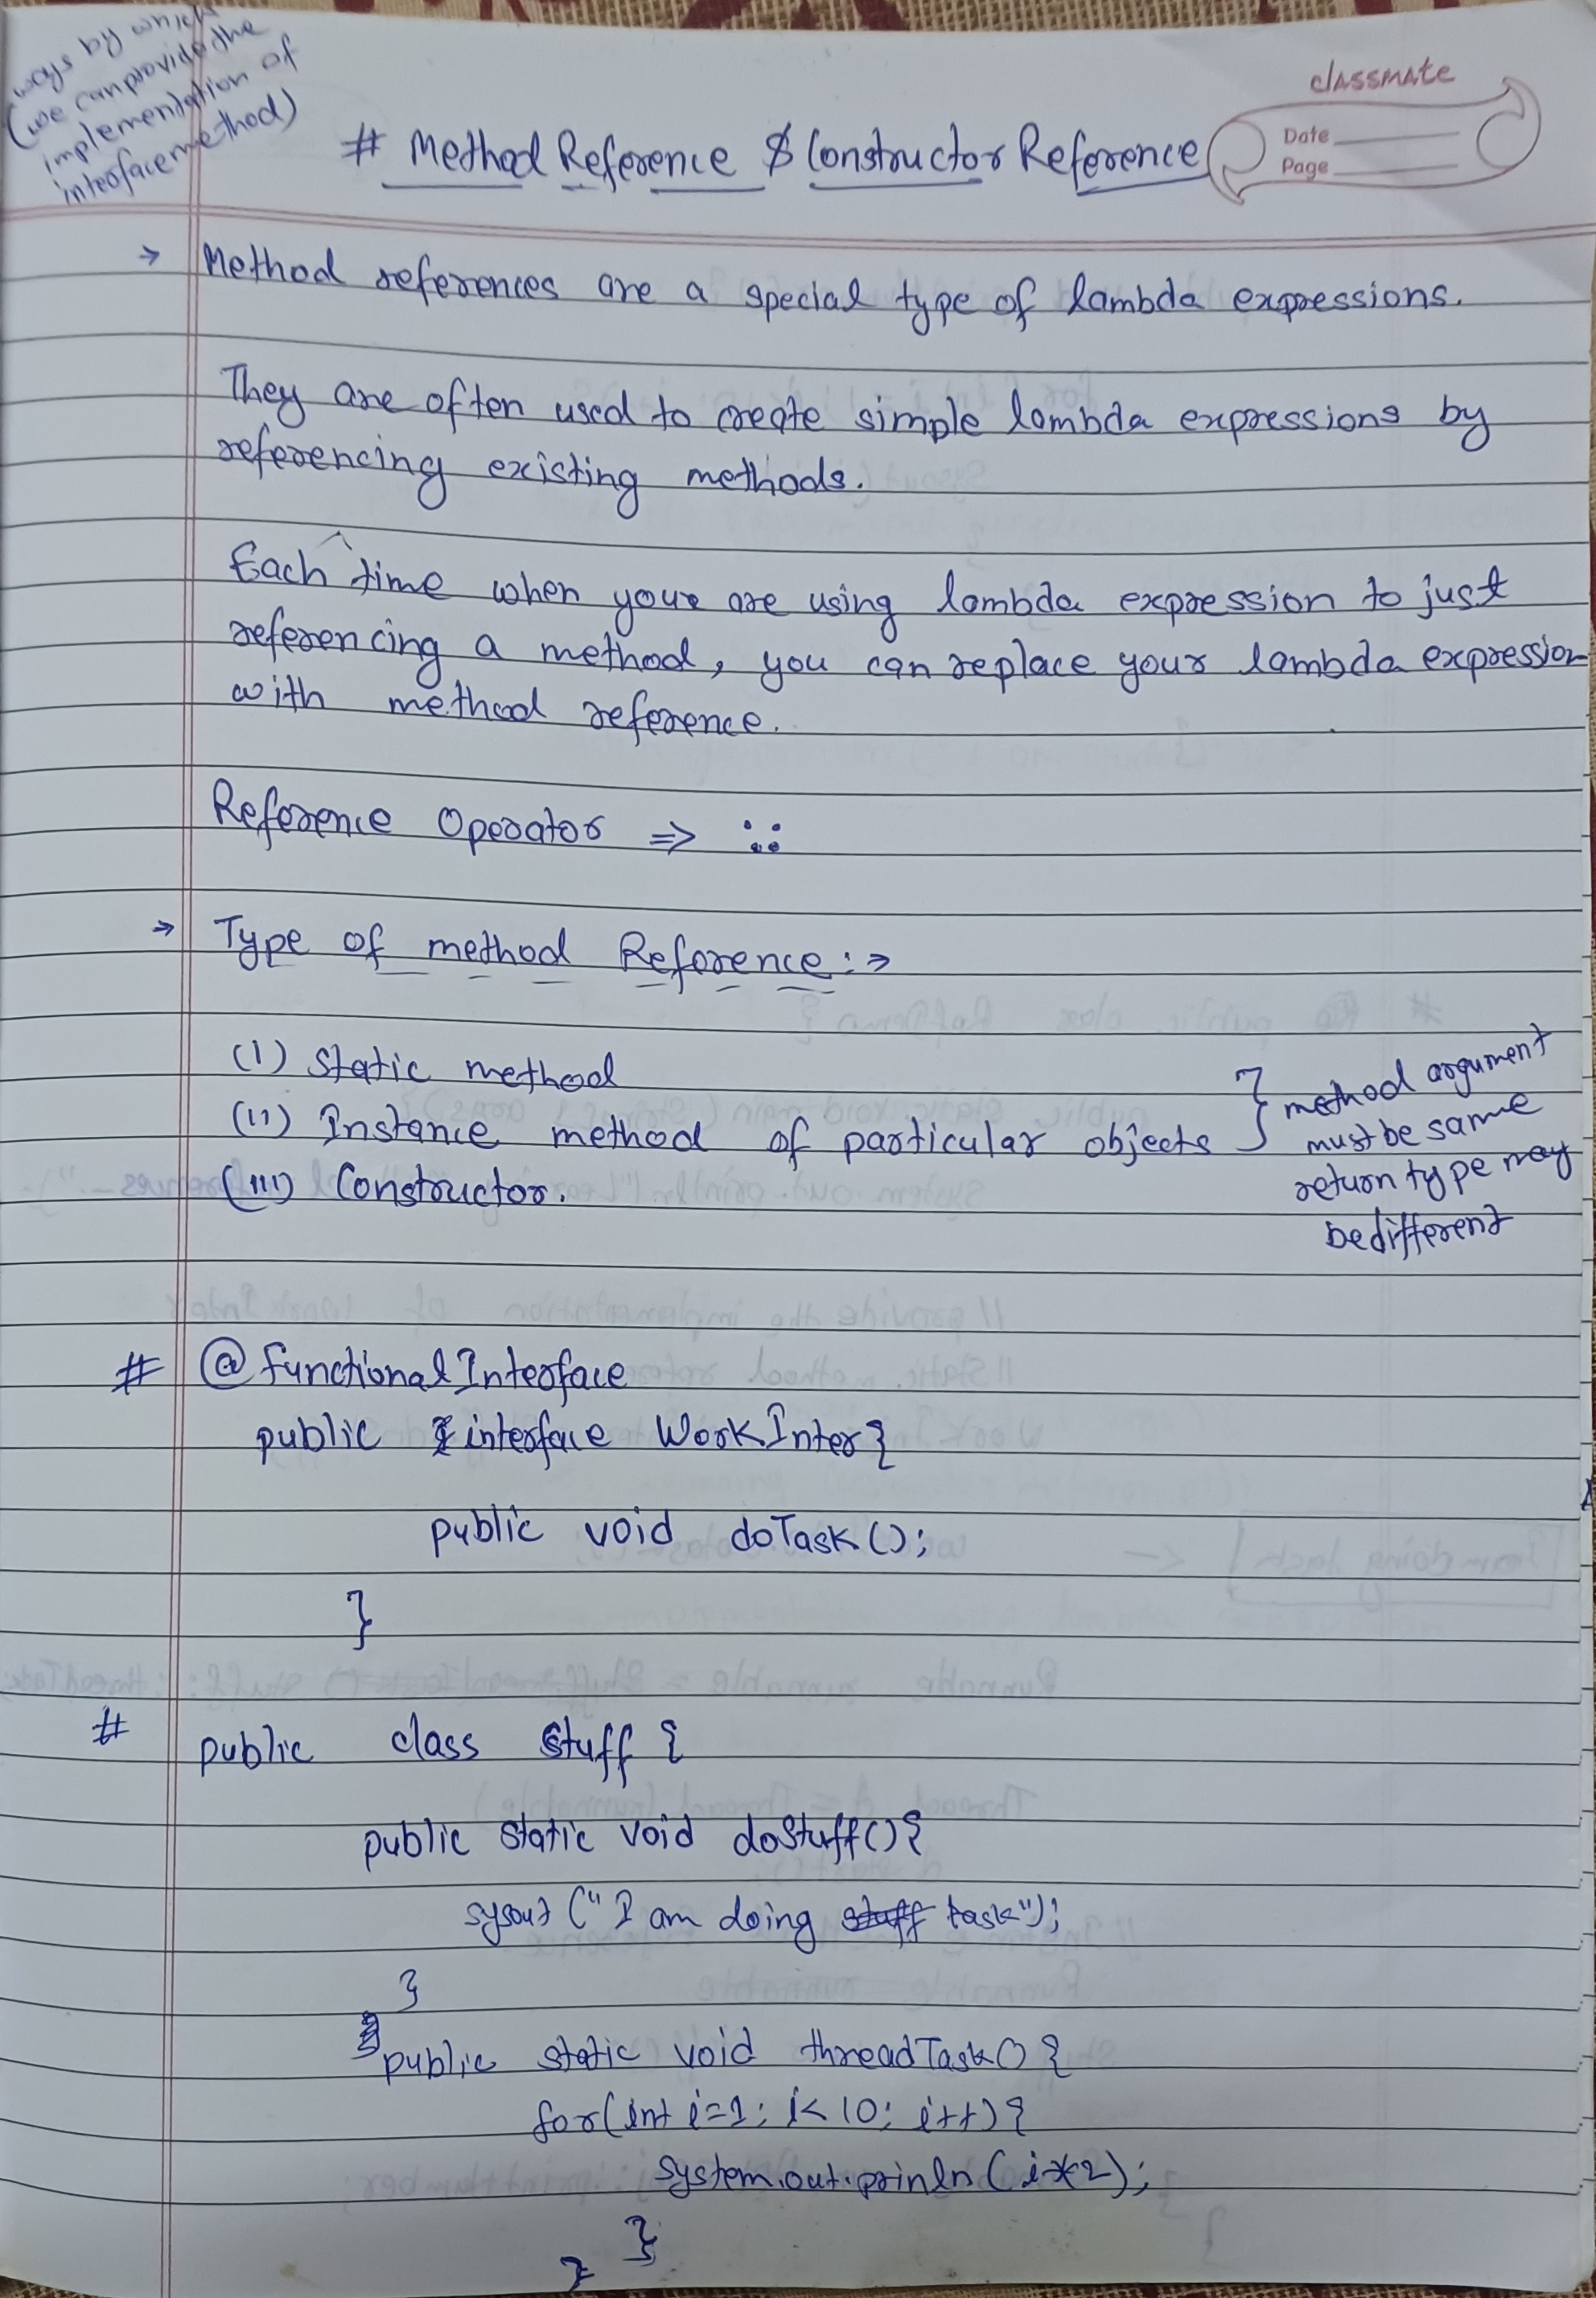 ways by which
(we can provide the
implementation of
interface method)
classmate
Date
Page
# Method Reference & Constructor Reference
→ Method references are a special type of lambda expressions.
They are often used to create simple lambda expressions by
referencing existing methods.
Each time when your are using lambda expression to just
referencing a method, you can replace your lambda expression
with method reference.
Reference Operator ⇒ ::
→ Type of method Reference :→
(I) Static method
(II) Instance method of particular objects
(III) Constructor.
} method argument
must be same
return type may
be different
# @FunctionalInterface
public interface WorkInter{
public void doTask();
}
# public class Stuff {
public static void doStuff(){
sysout ("I am doing stuff task");
}
public static void threadTask() {
for(int i=1; i<10; i++) {
system.out.prinln (i*2);
}
}